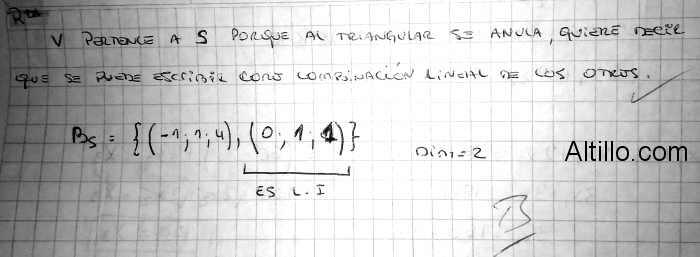 Rta
V PERTENCE A S PORQUE AL TRIANGULAR SE ANULA, QUIERE DECIR
QUE SE PUEDE ESCRIBIR COMO COMBINACIÓN LINEAL DE LOS OTROS.
Bs = {(-1; 1; 4), (0; 1; 1)} Dim = 2
Altillo.com
ES L. I
B